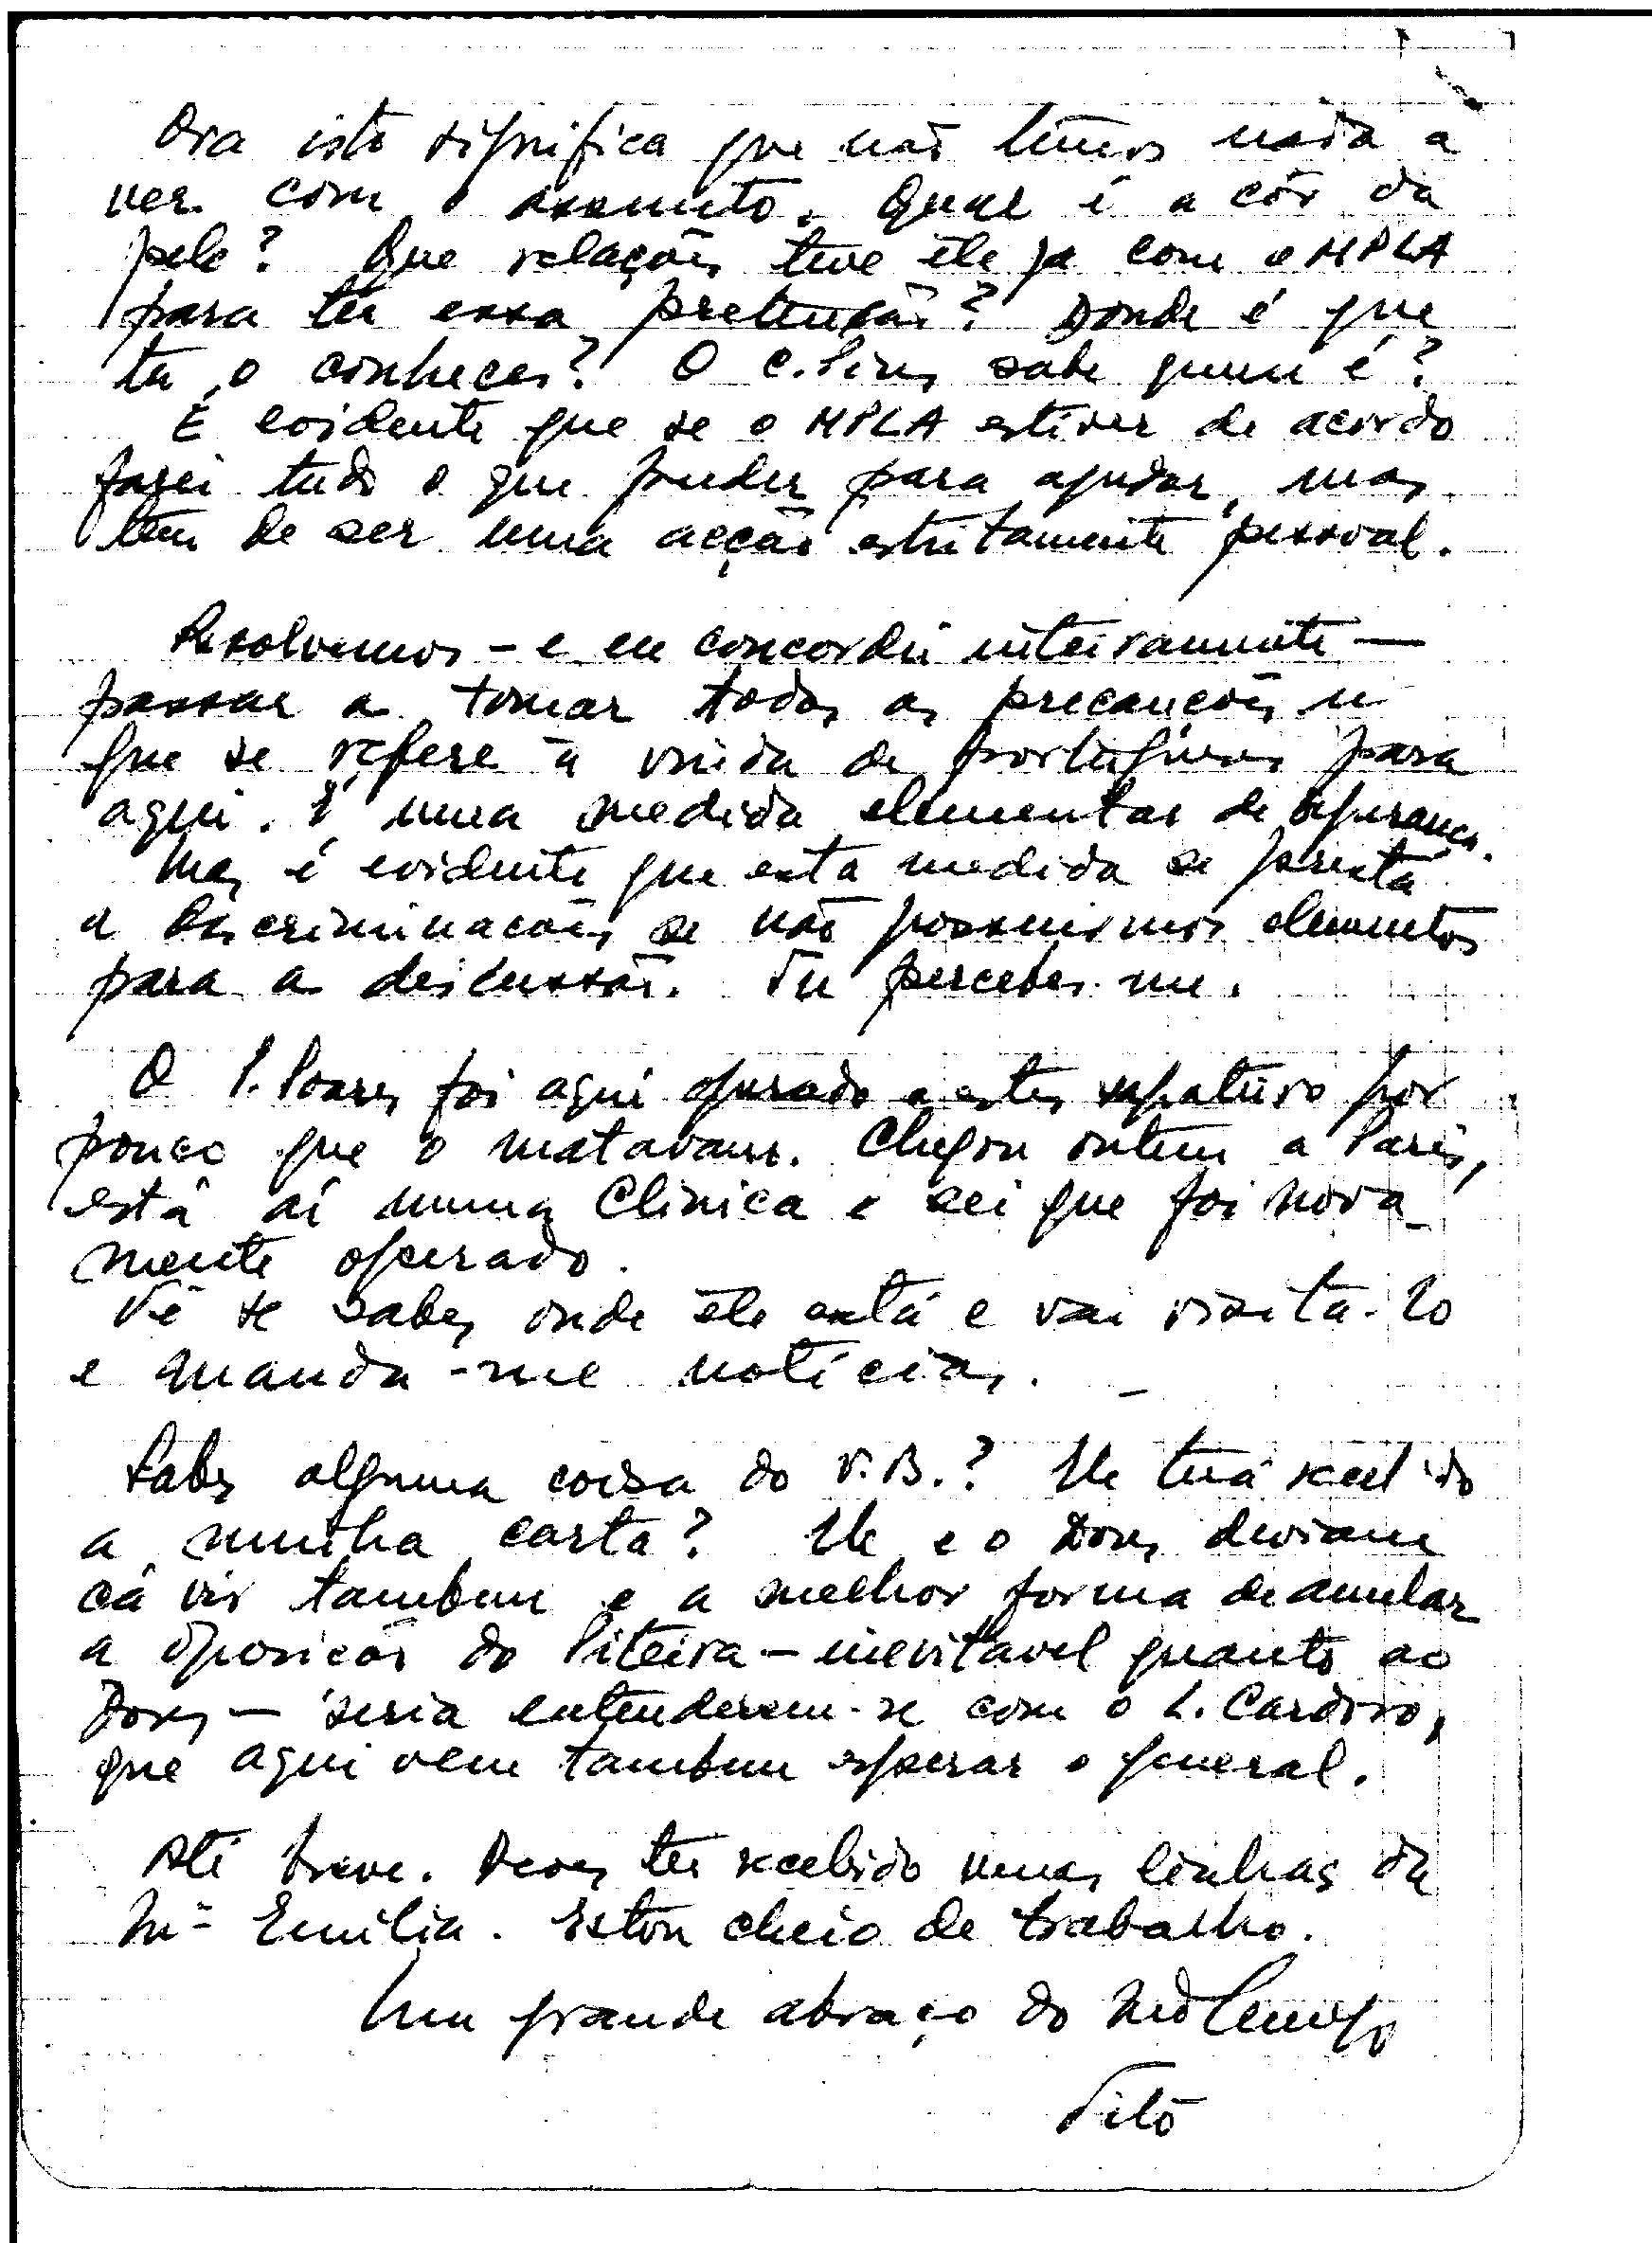 Ora isto significa que não temos nada a
ver com o assunto. Qual é a côr da
pele? Que relações teve êle já com o MPLA
para ter essa pretensão? Donde é que
tu o conheces? O C. Pires sabe quem é?
É evidente que se o MPLA estiver de acordo
farei tudo o que puder para ajudar, mas
tem de ser uma acção estritamente pessoal.
Resolvemos - e eu concordei inteiramente -
passar a tomar todas as precauções n
que se refere à vinda de portugueses para
aqui. É uma medida elementar de segurança.
Mas é evidente que esta medida se presta
a discriminações se não possuirmos elementos
para a discussão. Tu percebes-me.
O P. Soares foi aqui operado e estes por
pouco que o matavam. Chegou ontem a Paris,
está aí numa Clinica e sei que foi nova-
mente operado.
Vê se sabes onde êle está e vai visitá-lo
e manda-me notícias. -
Sabes alguma coisa do V.B.? Ele terá recebido
a minha carta? Ele e o Dores deviam
cá vir tambem e a melhor forma de anular
a oposição do Piteira - inevitavel quanto ao
Dores - seria entenderem-se com o L. Cardoso,
que aqui vem tambem esperar o general.
Até breve. Deves ter recebido umas linhas da
Mª Emilia. Estou cheio de trabalho.
Um grande abraço do